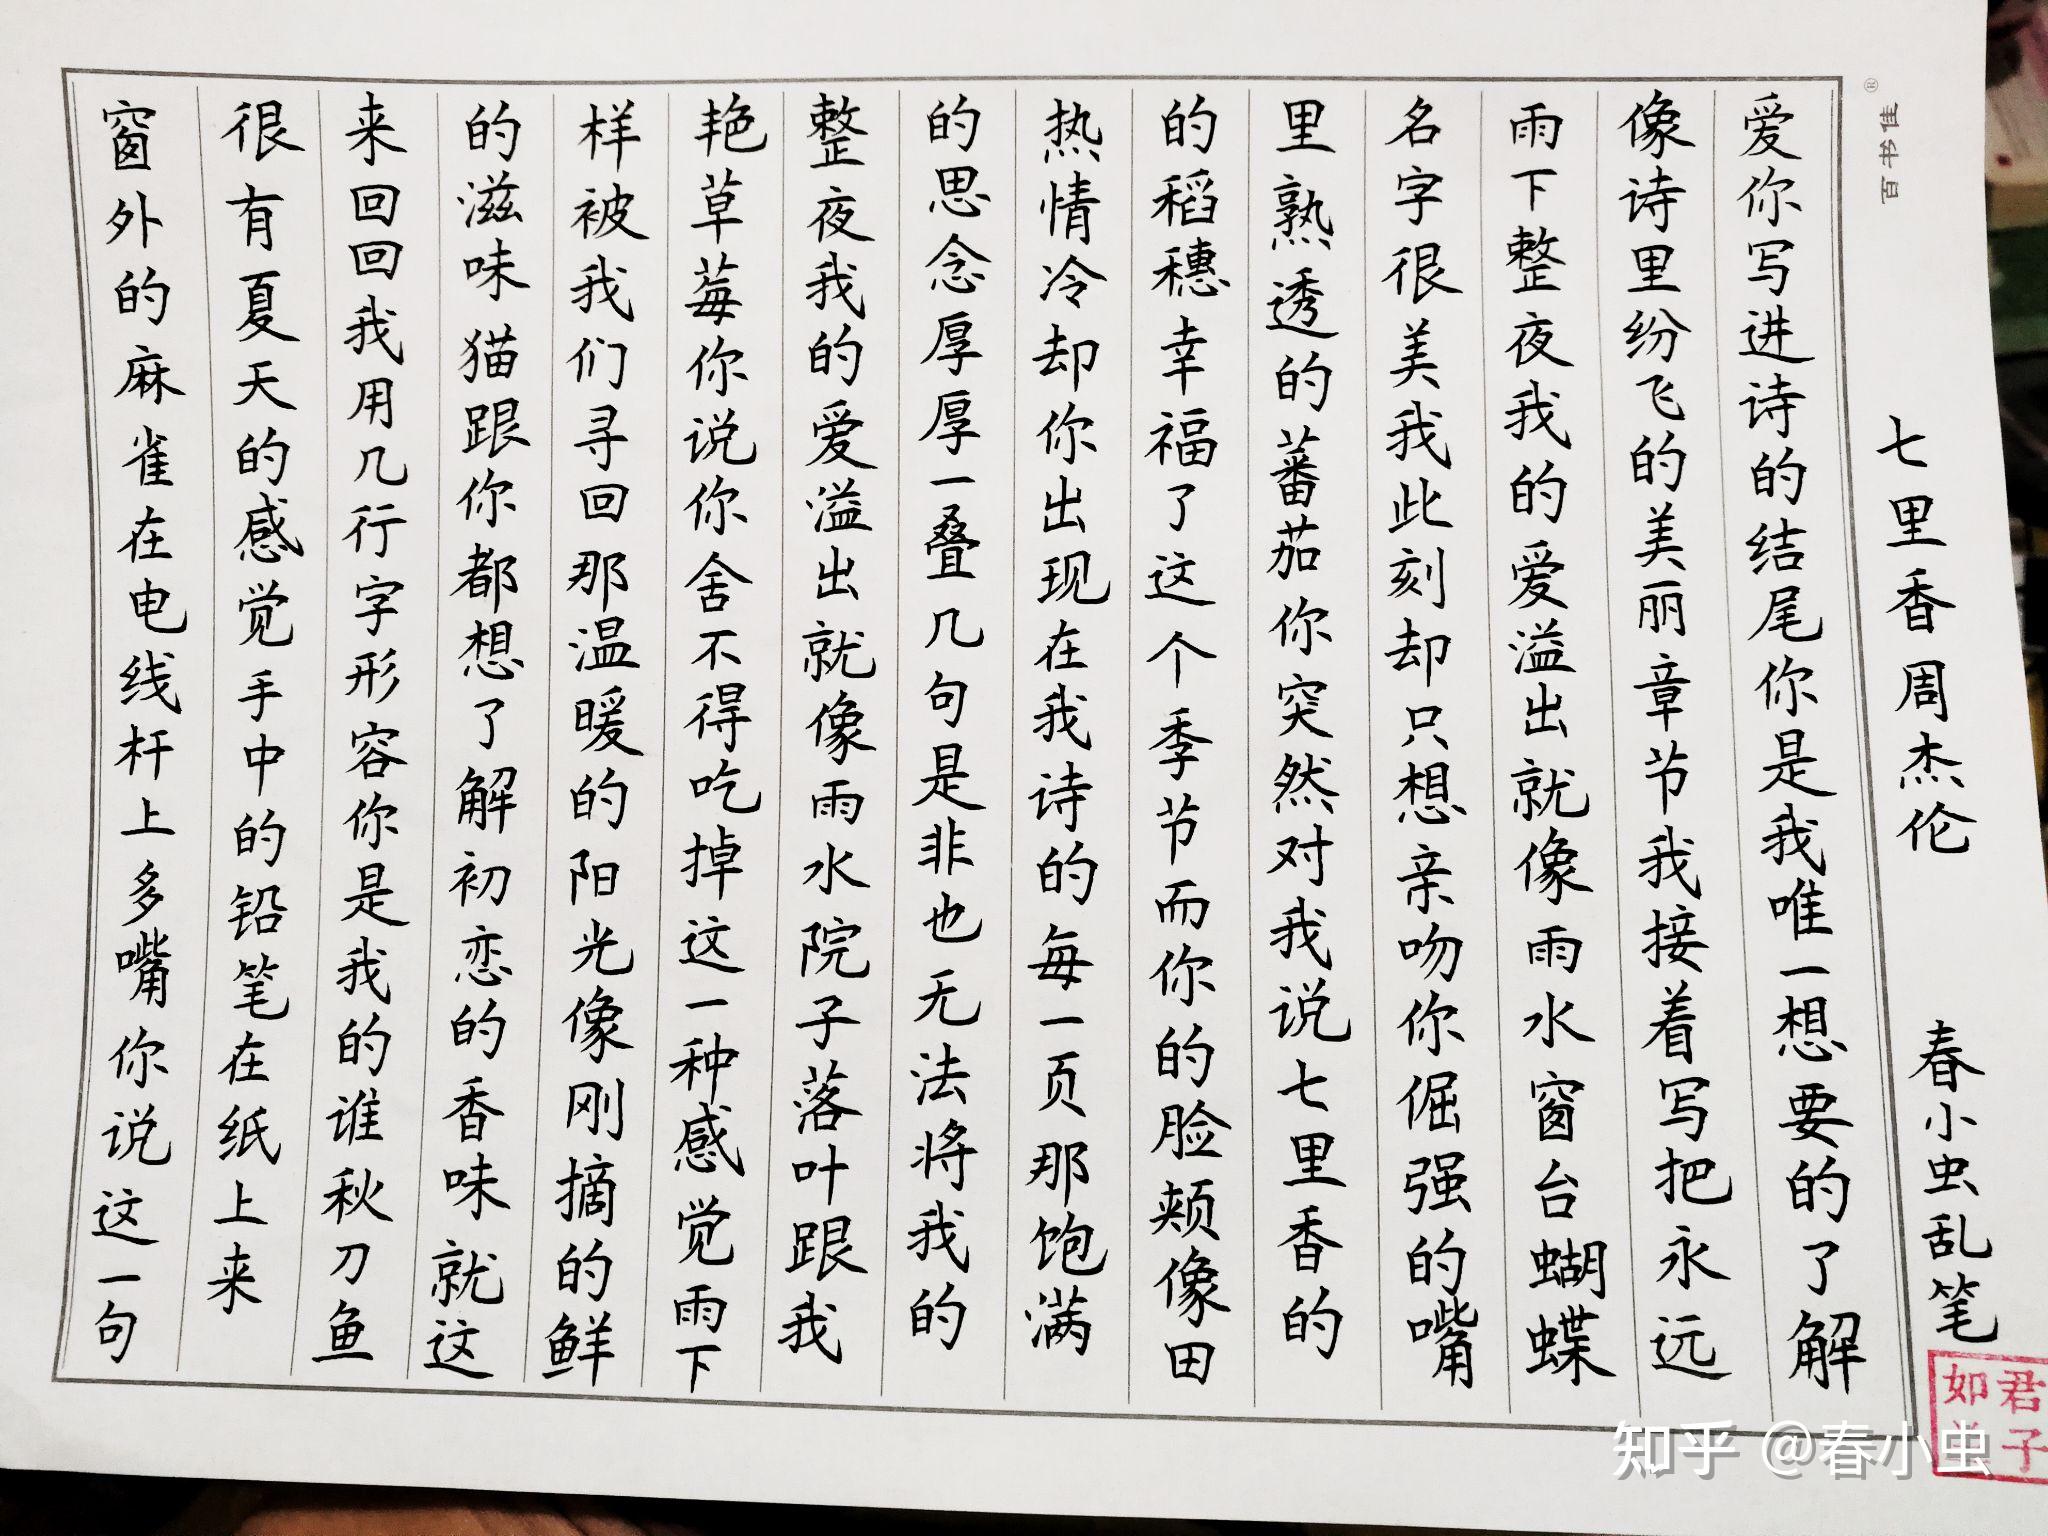 窗外的麻雀在电线杆上多嘴你说这一句
很有夏天的感觉手中的铅笔在纸上来
来回回我用几行字形容你是我的谁秋刀鱼
的滋味猫跟你都想了解初恋的香味就这
样被我们寻回那温暖的阳光像刚摘的鲜
艳草莓你说你舍不得吃掉这一种感觉雨下
整夜我的爱溢出就像雨水院子落叶跟我
的思念厚厚一叠几句是非也无法将我的
热情冷却你出现在我诗的每一页那饱满
的稻穗幸福了这个季节而你的脸颊像田
里熟透的蕃茄你突然对我说七里香的
名字很美我此刻却只想亲吻你倔强的嘴
雨下整夜我的爱溢出就像雨水窗台蝴蝶
像诗里纷飞的美丽章节我接着写把永远
爱你写进诗的结尾你是我唯一想要的了解
七里香周杰伦 春小虫乱笔
佳书百®
君子如
知乎 @春小虫